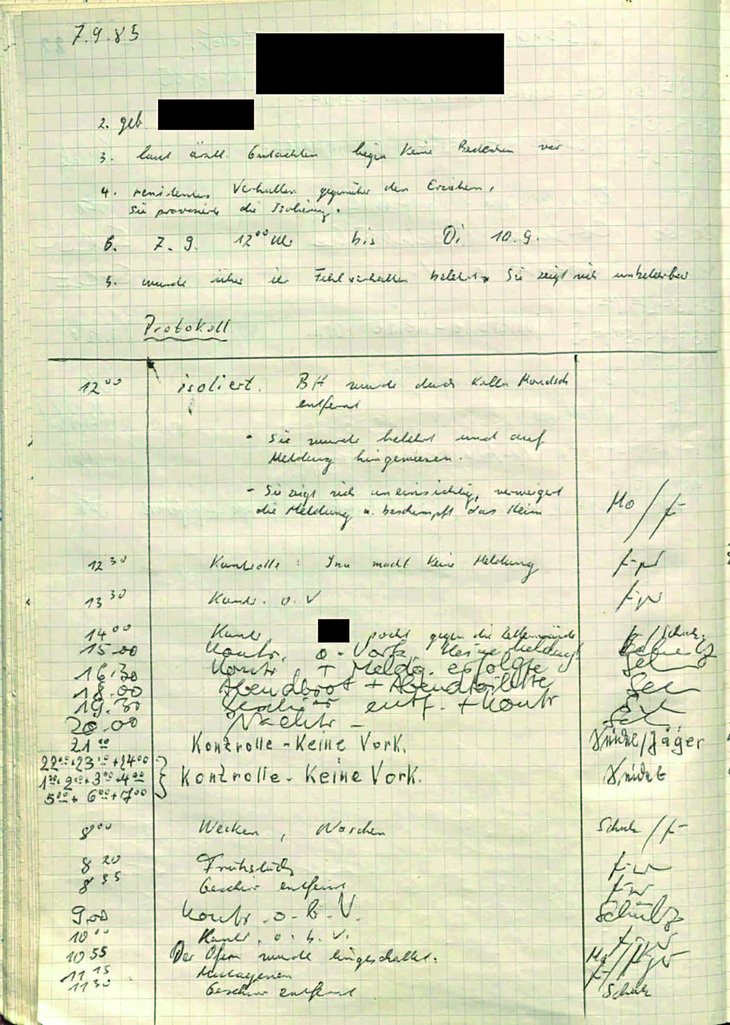 7.9.85
2. geb
3. laut ärztl. Gutachten liegen keine Bedenken vor
4. Verhalten gegenüber den Erziehern,
Sie provozierte die Isolierung.
6. 7.9. 12⁰⁰ Uhr bis Di 10.9.
5. wurde über ihr Fehlverhalten belehrt, Sie zeigt sich unbelehrbar
Protokoll
12⁰⁰ isoliert. BH wurde durch Koll.
entfernt
- Sie wurde belehrt und auf
Meldung hingewiesen.
- Sie zeigt sich uneinsichtig, verweigert
die Meldung u. beschimpft das Heim Mo/
12³⁰ Kontrolle: macht keine Meldung
13³⁰ Kontr. o. V
14⁰⁰ Kontr pocht gegen die Zellenwände
15.00 Kontr. o. Vork. keine Meldung
16.30 Kontr + Meldg. erfolgte
18.00 Abendbrot + Abendtoilette
19.30 Geschirr entf. + Kontr
20.00 Nachtr –
21⁰⁰ Kontrolle - Keine Vork. /Jäger
22⁰⁰+23⁰⁰+24⁰⁰
1⁰⁰+2⁰⁰+3⁰⁰+4⁰⁰ Kontrolle - Keine Vork.
5⁰⁰+6⁰⁰+7⁰⁰
8⁰⁰ Wecken, Waschen
8²⁰ Frühstück
8³⁵ Geschirr entfernt
9.00 Kontr. o. B. V. Schulz
10⁰⁰ Kontr. o. b. V.
10⁵⁵ Der Ofen wurde eingeschaltet.
11¹⁵ Mittagessen
11³⁰ Geschirr entfernt